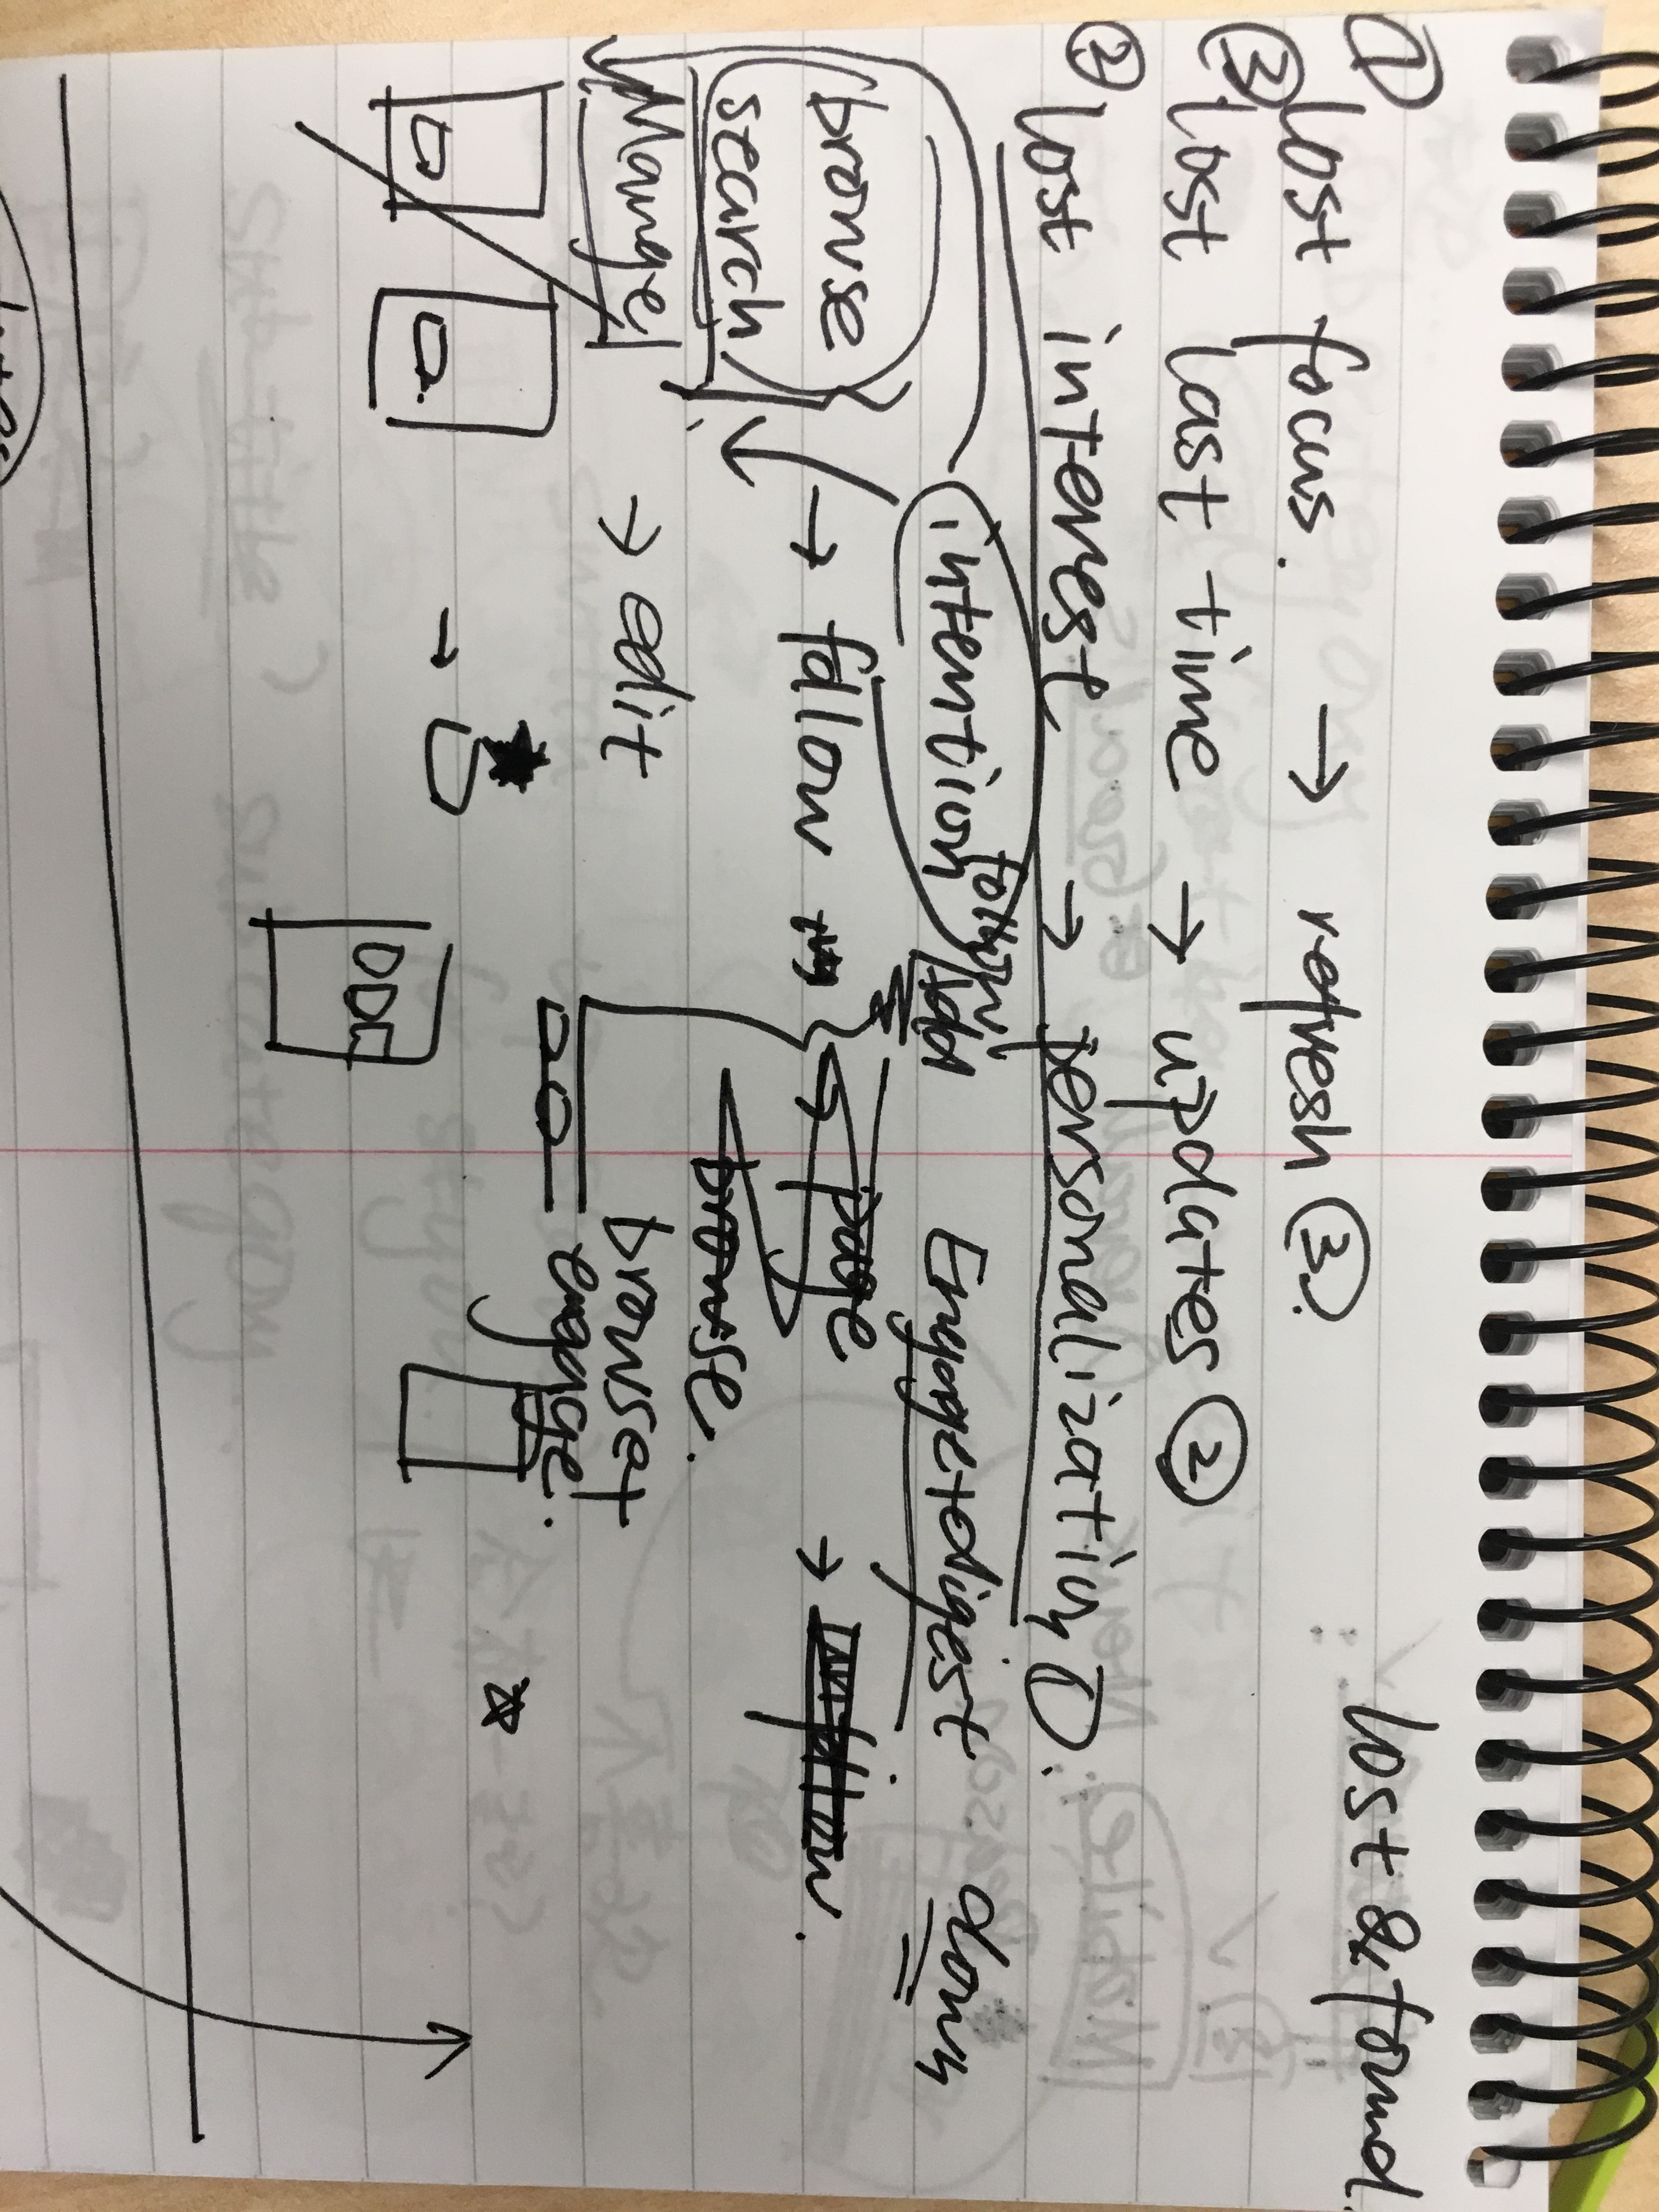 lost & found.
① lost focus. → refresh ③.
③ lost last time → updates ②
② lost interest → personalization ①.
intention
Engage + digest along
browse
search → follow
page
browse.
Manage → edit
browse +
engage.